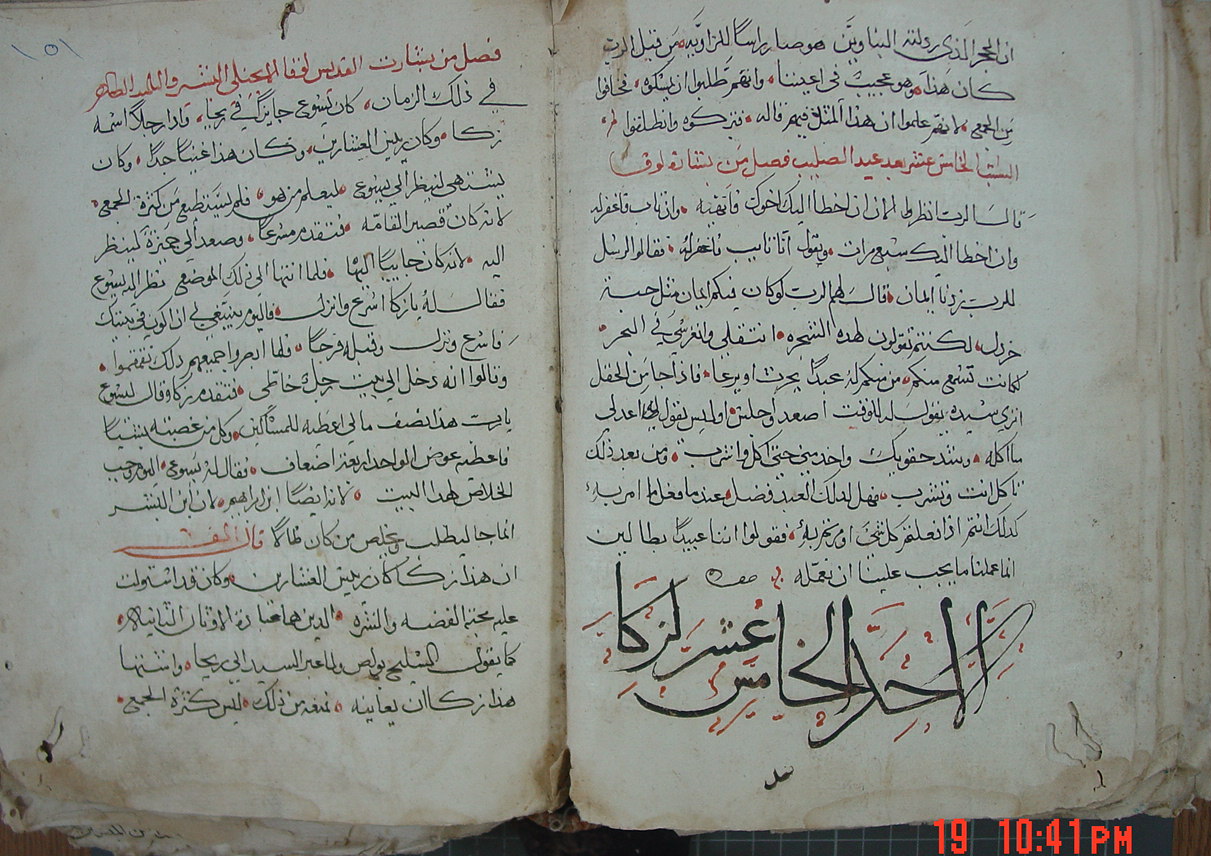 ان الحجر الذي رذلته البناوين هو صار راساً للزاويه من قبل الرب
كان هذا وهو عجيب في اعيننا وانهم طلبوا ان يمسكوه فخافوا
من الجمع لانهم علموا ان هذا المثل فيهم قاله فتركوه وانطلقوا
السبت الخامس عشر بعد عيد الصليب فصل من بشارة لوقا
قال الرب انظروا الان ان اخطا اليك اخوك فانهيه وان تاب فاغفر له
وان اخطا اليك سبع مرات ويقول انا تايب فاغفر له فقالوا الرسل
للرب زدنا ايمان قال لهم الرب لو كان فيكم ايمان مثل حبة
خردل لكنتم تقولون لهذه الشجره انتقلي وانغرسي في البحر
لكانت تسمع منكم من منكم له عبداً يحرث او يرعا فاذا جا من الحقل
اترى سيده يقول له للوقت اصعد واجلس اوليس يقول له اعد لي
ما اكله وشد حقويك واخدمني حتى اكل واشرب ومن بعد ذلك
تاكل انت وتشرب فهل لذلك العبد فضل عند ما فعل ما امر به
كذلك انتم اذا فعلتم كل شي امرتم به فقولوا اننا عبيداً بطالين
انما عملنا ما يجب علينا ان نعمله
الاحد الخامس عشر لزكا
١٥١
فصل من بشارت القديس لوقا الانجيلي المبشر والتلميد الطاهر
في ذلك الزمان كان يسوع جايزاً في ريحا واذا رجلاً اسمه
زكا وكان ريس العشارين وكان هذا غنياً جداً وكان
يشتهي لينظر الي يسوع ليعلم من هو فلم يستطيع من كثرة الجمع
لانه كان قصير القامه فتقدم مسرعاً وصعد الي جميزة لينظر
اليه لانه كان جايباً اليها فلما انتها الي ذلك الموضع نظر اليه يسوع
فقال له يا زكا اسرع وانزل فاليوم ينبغي لي ان اكون في بيتك
فاسرع ونزل وقبله فرحاً فلما ابصروا جميعهم ذلك تقمقموا
وقالوا انه دخل الي بيت رجل خاطي فتقدم زكا وقال ليسوع
يا رب هذا نصف مالي اعطيه للمساكين وكل من غصبته شياً
فاعطيه عوض الواحد اربعة اضعاف فقال له يسوع اليوم وجب
الخلاص لهذا البيت لانه ايضاً ابن ابراهيم لان ابن البشر
انما جا ليطلب ويخلص من كان ظالا قال المفسر
ان هذا زكا كان ريس العشارين وكان قد استولت
عليه محبة الفضه والشره الذين هما عبادة الاوثان الثانيه
كما يقول السليح بولص ولما عبر السيد الي ريحا واشتها
هذا زكا ان يعاينه فمنعه من ذلك ليس كثرة الجمع